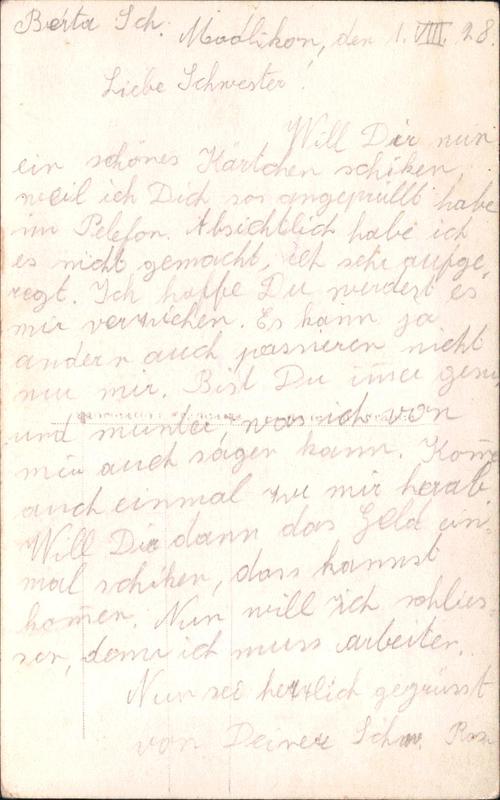 Berta Sch. Madlikon, den 1. VIII. 28.
Liebe Schwester!
Will Dir nun
ein schönes Kärtchen schiken,
weil ich Dich so angeprüllt habe
im Telefon. Absichtlich habe ich
es nicht gemacht, ich sehr aufge-
regt. Ich hoffe Du werdest es
mir verzeichen. Es kann ja
andern auch passieren nicht
nur mir. Bist Du imer
und munter, was ich von
mir auch sagen kann. Kome
auch einmal zu mir herab.
Will Dir dann das Geld ein-
mal schiken, dass kannst
komen. Nun will ich schlies-
sen, denn ich muss arbeiten.
Nun sei herzlich gegrüsst
von Deiner Schw. Rosa